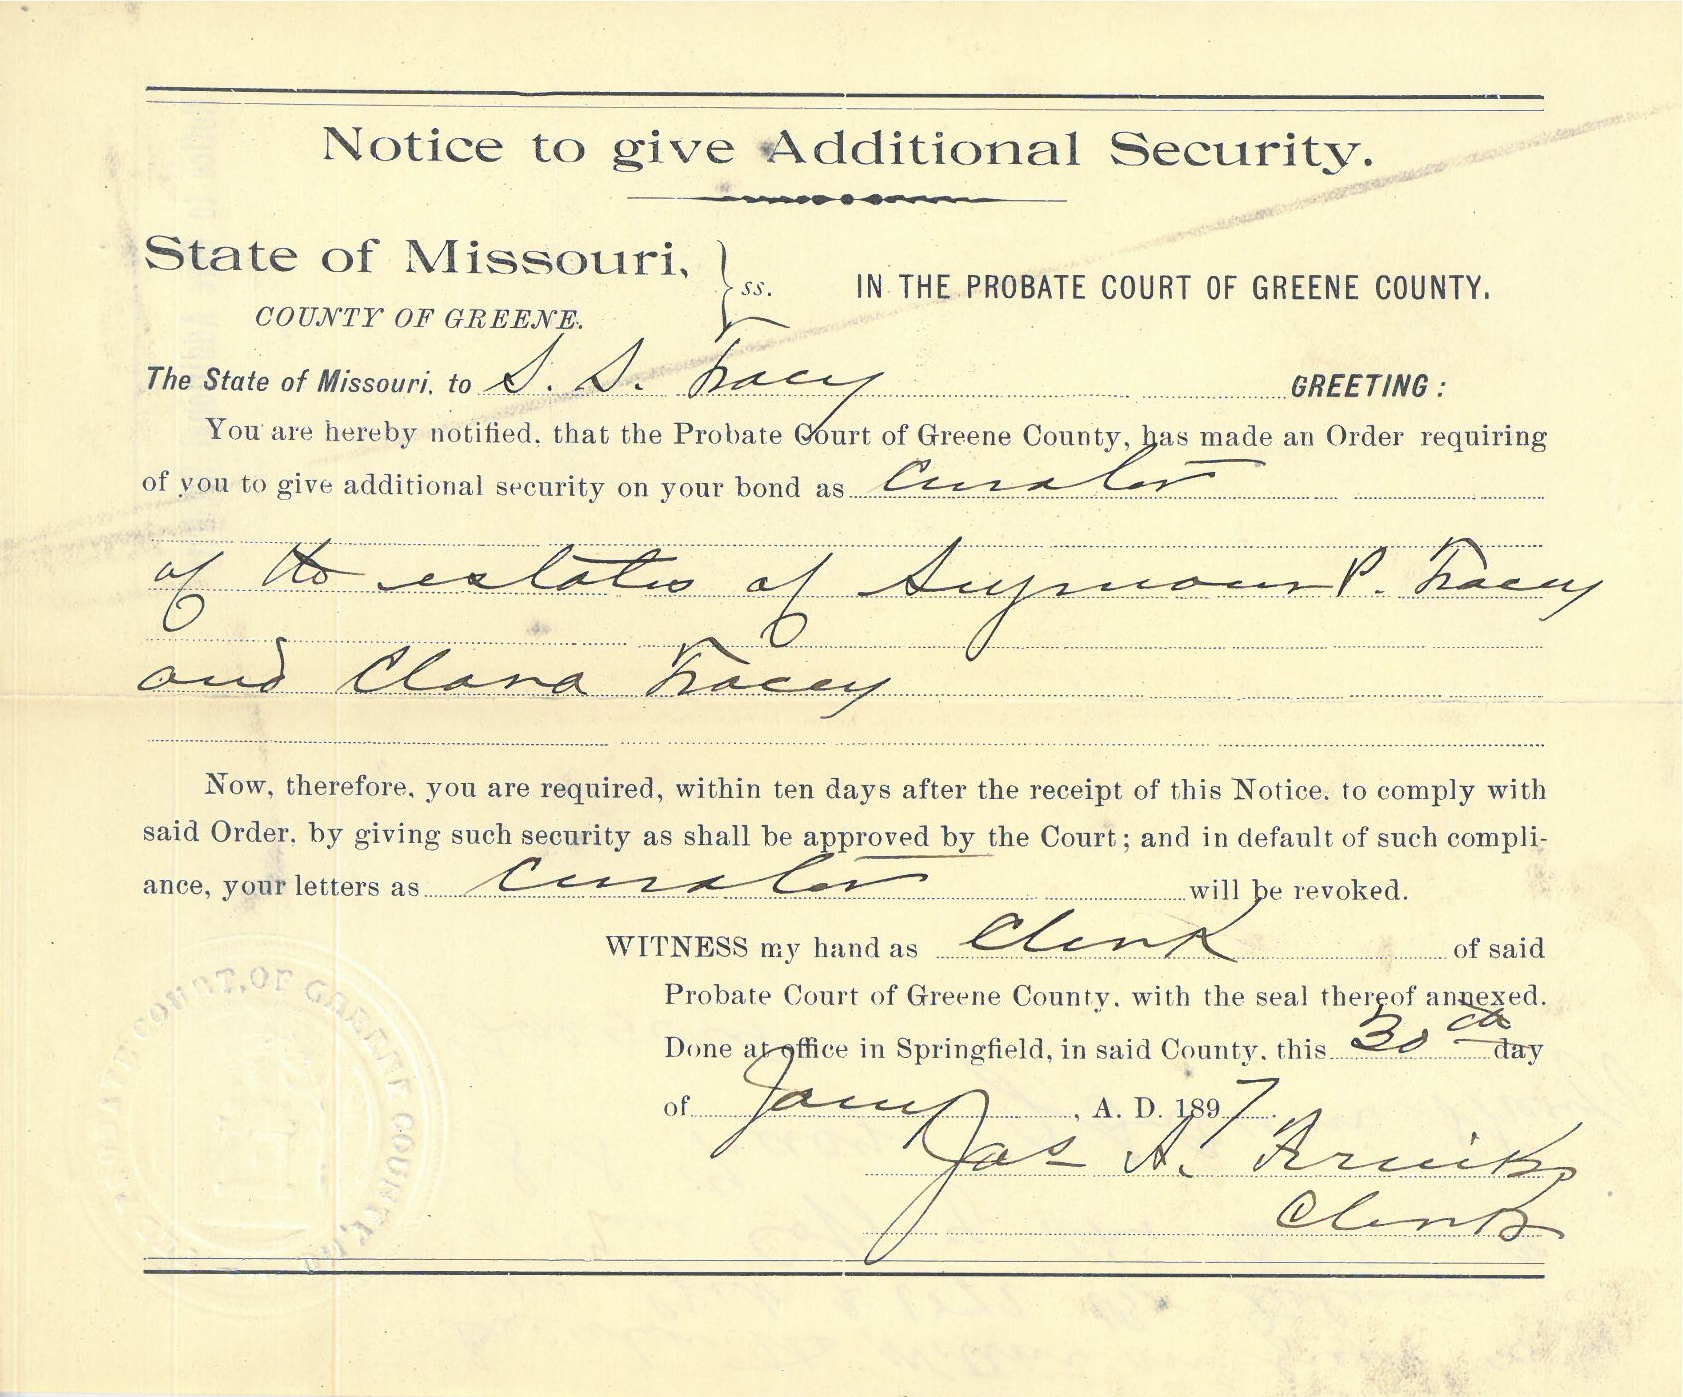 Notice to give Additional Security.
State of Missouri, } ss. IN THE PROBATE COURT OF GREENE COUNTY.
COUNTY OF GREENE.
The State of Missouri, to S. S. Tracy GREETING:
You are hereby notified, that the Probate Court of Greene County, has made an Order requiring
of you to give additional security on your bond as Curator
of the estates of Seymour P. Tracey
and Clara Tracey
Now, therefore, you are required, within ten days after the receipt of this Notice, to comply with
said Order, by giving such security as shall be approved by the Court; and in default of such compli-
ance, your letters as Curator will be revoked.
WITNESS my hand as Clerk of said
Probate Court of Greene County, with the seal thereof annexed.
Done at office in Springfield, in said County, this 30th day
of Jany, A. D. 1897.
Jas A.
Clerk
COURT OF GREENE COUNTY, MO.